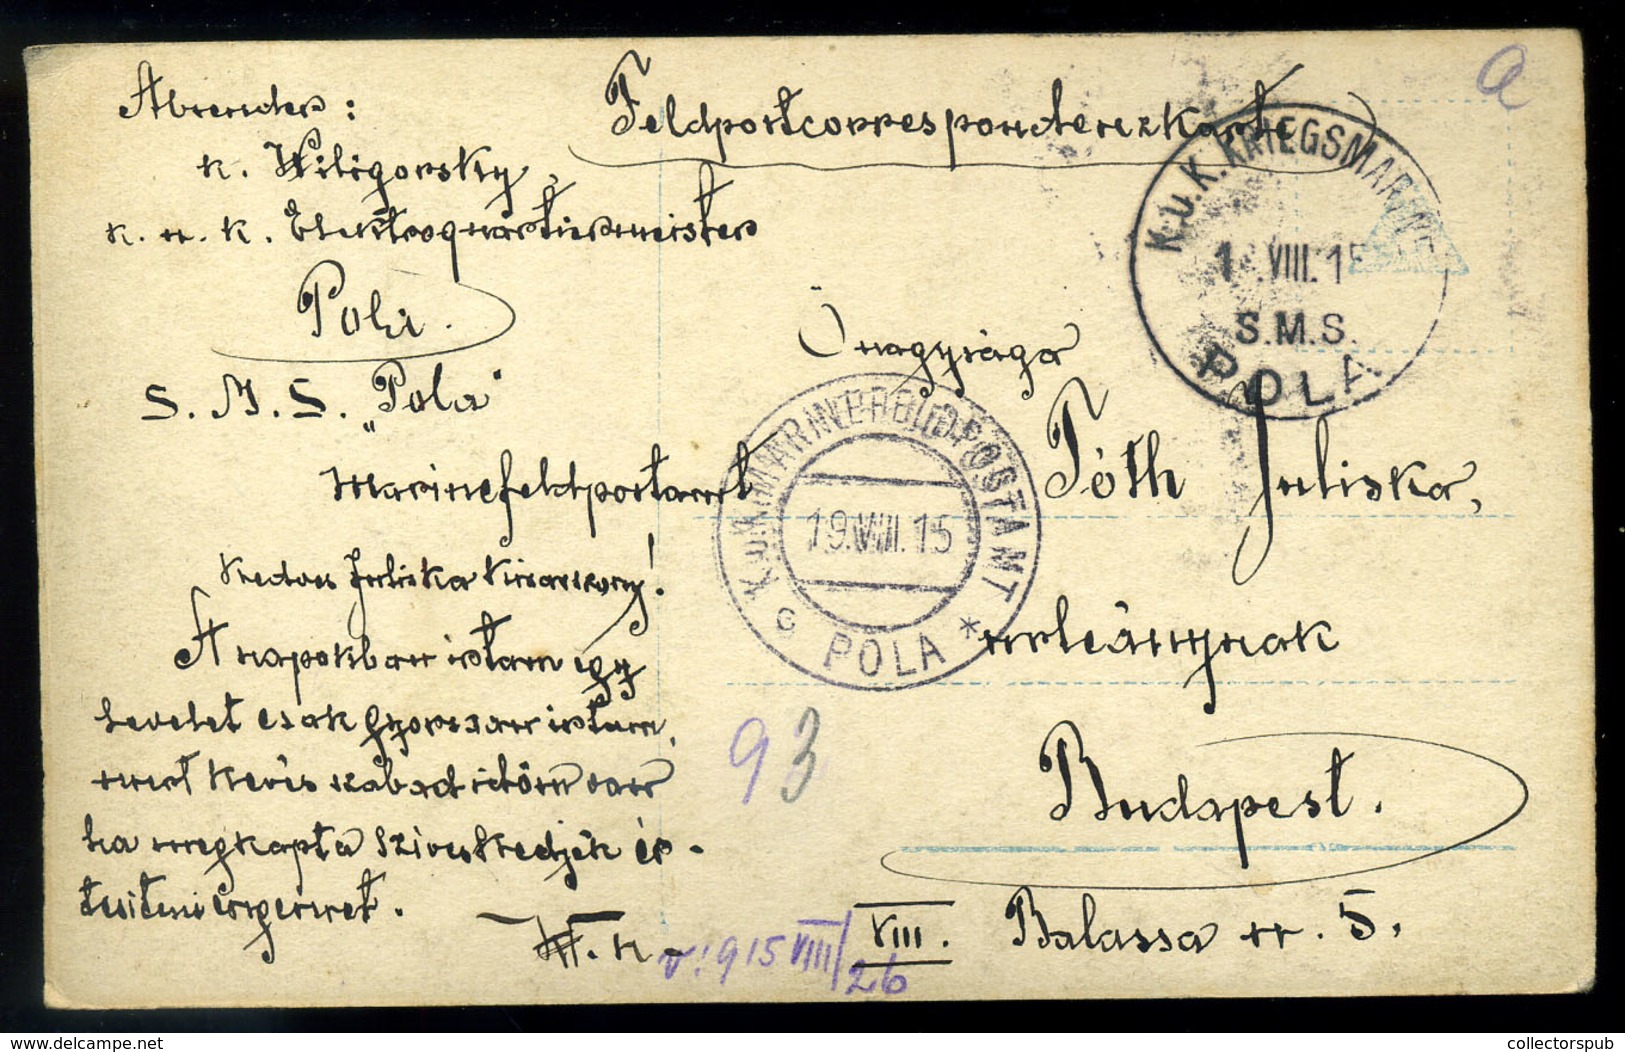 Absender:
Feldpostcorrespondenzkarte
K. Wiligorsky,
k. u. k. Elektroquartiermeister
Pola.
S. M. S. „Pola"
Marinefeldpostamt
Kedves Juliska kisasszony!
A napokban irtam egy
levelet csak gyorssan irtam,
mert kevés szabad időm van
ha megkapta sziveskedjék ér-
tesiteni engemet.
W. K.
Önagysága
Tóth Juliska,
urleánynak
Budapest.
VIII. Balassa u. 5.
K.U.K. KRIEGSMARINE
VIII.15
S.M.S.
POLA
K.u.K. MARINEFELDPOSTAMT
19.VIII.15
c POLA *
a
93
v: 915 VIII/26
www.delcampe.net
collectorspub